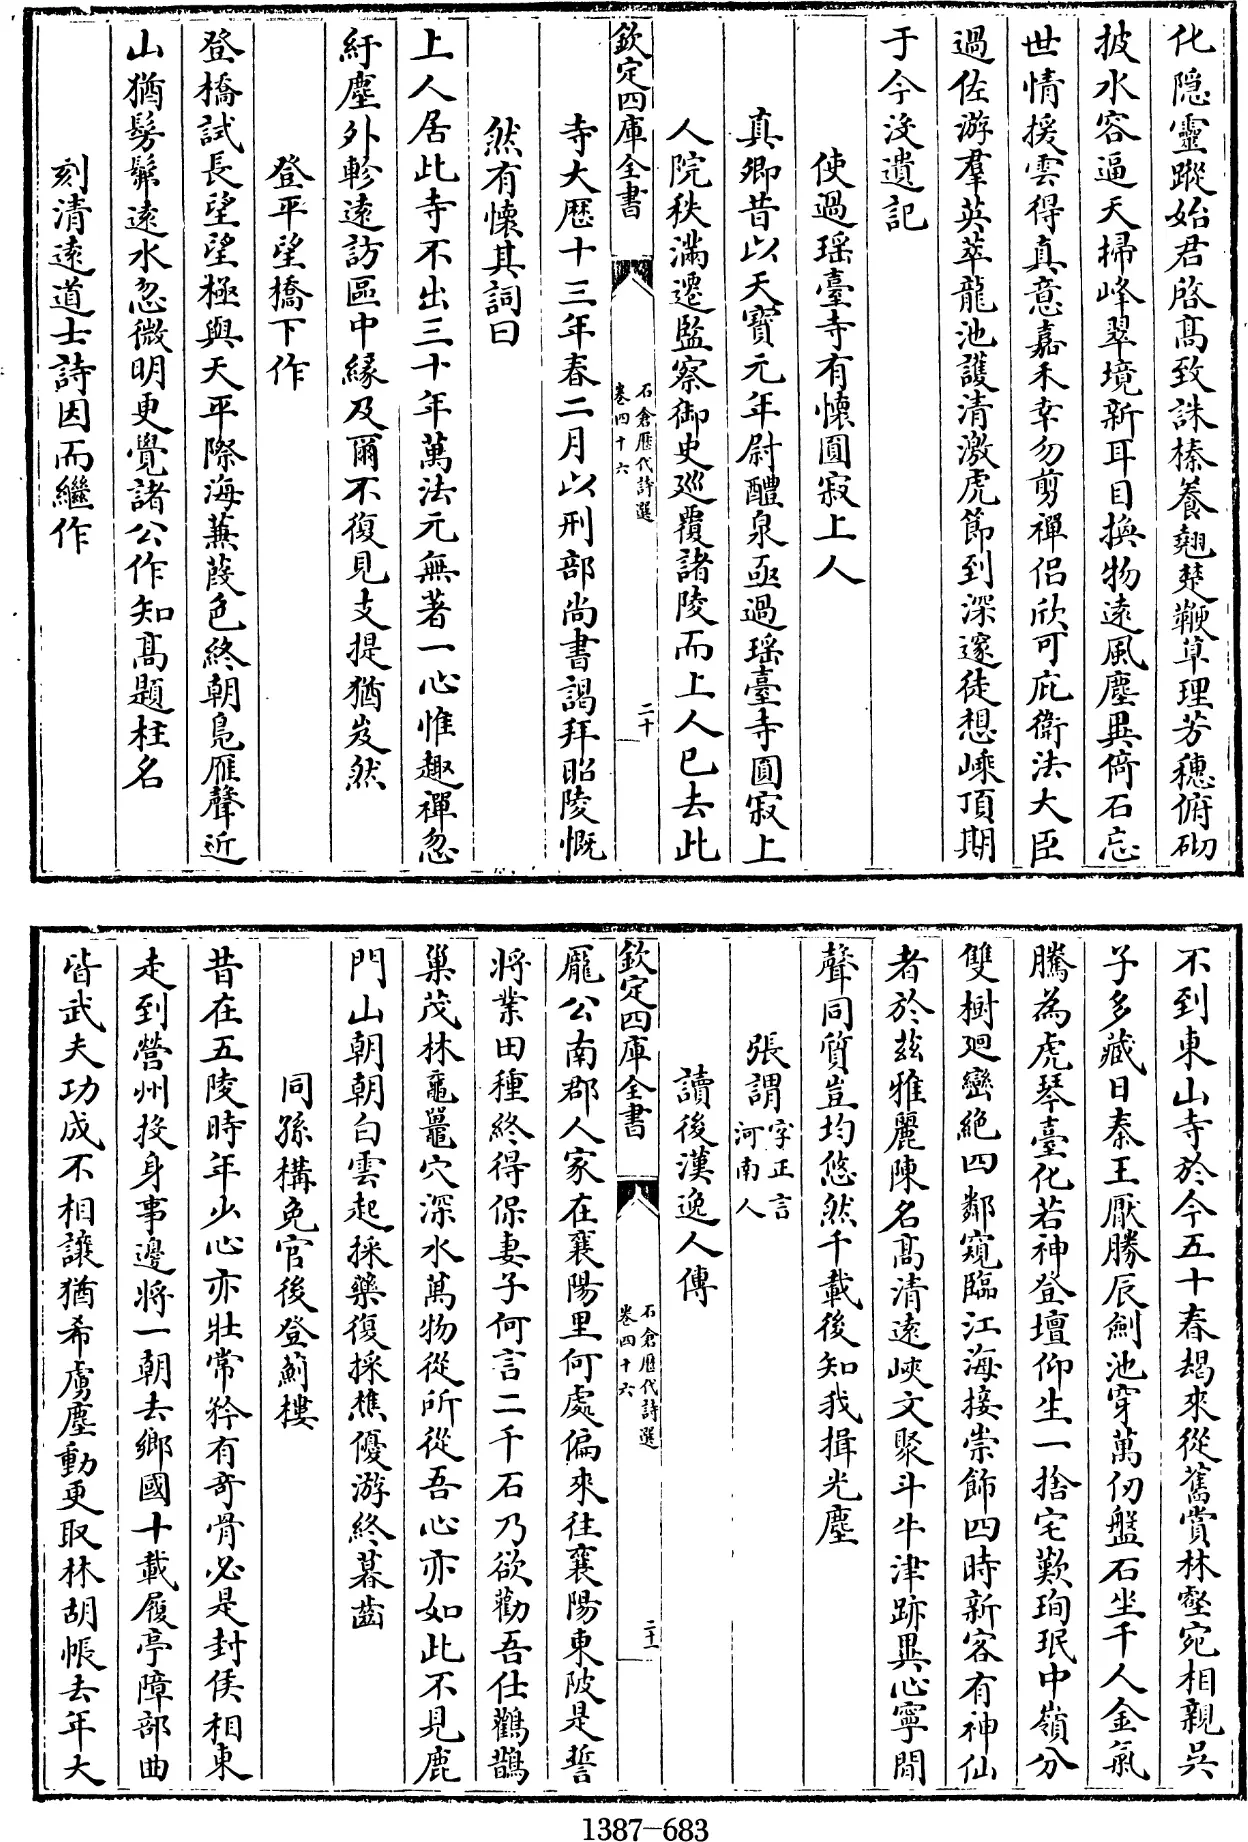 化隠靈蹤始君啓髙致誅榛養翹楚鞭草理芳穗俯砌
披水容逼天掃峰翠境新耳目換物遠風塵異倚石忘
世情援雲得真意嘉禾幸勿剪禪侣欣可庇衛法大臣
過佐游羣英萃龍池護清激虎節到深邃徒想嵊頂期
于今没遺記
使過瑶臺寺有懐圓寂上人
真卿昔以天寳元年尉醴泉亟過瑶臺寺圓寂上
人院秩滿遷監察御史廵覆諸陵而上人已去此
欽定四庫全書
石倉歴代詩選
卷四十六
二十
寺大厯十三年春二月以刑部尚書謁拜昭陵慨
然有懐其詞曰
上人居此寺不出三十年萬法元無著一心惟趣禪忽
紆塵外軫遠訪區中縁及爾不復見支提猶岌然
登平望橋下作
登橋試長望望極與天平際海蒹葭色終朝鳬雁聲近
山猶髣髴遠水忽微明更覺諸公作知髙題柱名
刻清遠道士詩因而繼作
不到東山寺於今五十春朅來從舊賞林壑宛相親吳
子多藏日秦王厭勝辰劍池穿萬仞盤石坐千人金氣
騰為虎琴臺化若神登壇仰生一捨宅歎珣珉中嶺分
雙樹廻巒絶四鄰窺臨江海接崇飾四時新客有神仙
者於兹雅麗陳名髙清遠峽文聚斗牛津跡異心寧間
聲同質豈均悠然千載後知我揖光塵
張謂
字正言
河南人
讀後漢逸人傳
欽定四庫全書
石倉歴代詩選
卷四十六
二十一
龐公南郡人家在襄陽里何處偏來往襄陽東陂是誓
將業田種終得保妻子何言二千石乃欲勸吾仕鸛鵲
巢茂林黿鼉穴深水萬物從所從吾心亦如此不見鹿
門山朝朝白雲起採藥復採樵優游終暮齒
同孫構免官後登薊樓
昔在五陵時年少心亦壯常矜有奇骨必是封侯相東
走到營州投身事邊將一朝去鄉國十載履亭障部曲
皆武夫功成不相讓猶希虜塵動更取林胡帳去年大
1387-683